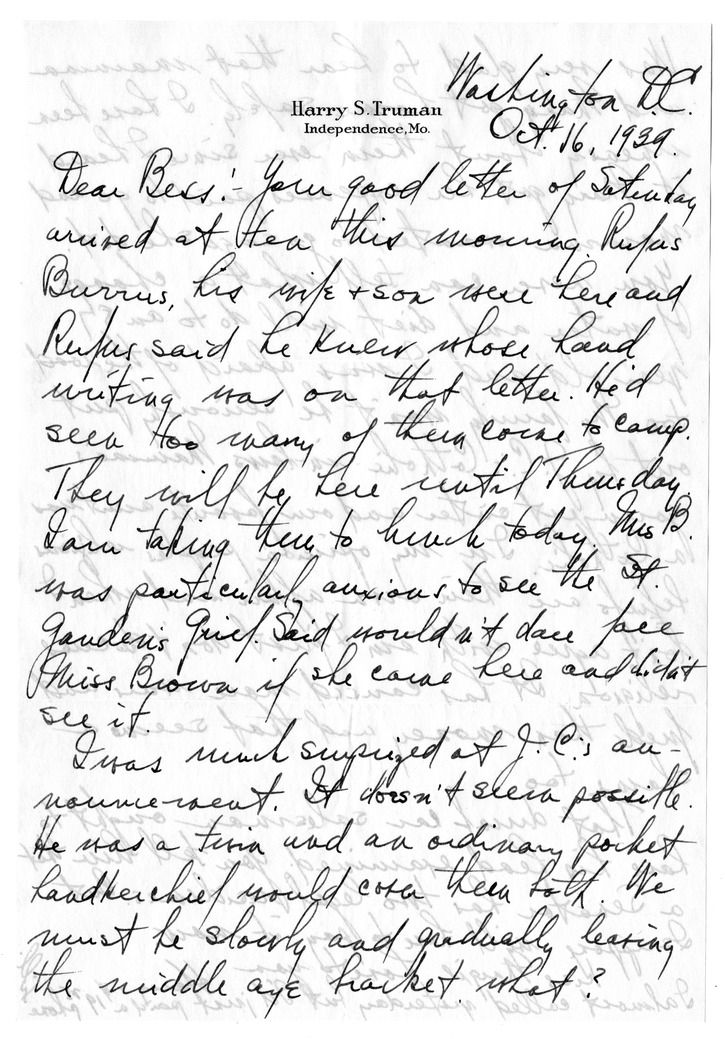 Washington D.C.
Harry S. Truman
Independence, Mo.
Oct. 16, 1939.
Dear Bess:- Your good letter of Saturday
arrived at ten this morning. Rufus
Burrus, his wife + son were here and
Rufus said he knew whose hand
writing was on that letter. He'd
seen too many of them come to camp.
They will be here until Thursday.
I am taking them to lunch today. Mrs B.
was particularly anxious to see the St.
Gaudens Grief. Said wouldn't dare face
Miss Brown if she came here and didn't
see it.
I was much surprized at J.C.'s an-
nouncement. It doesn't seem possible.
He was a twin and an ordinary pocket
handkerchief would cover them both. We
must be slowly and gradually leaving
the middle age bracket what?